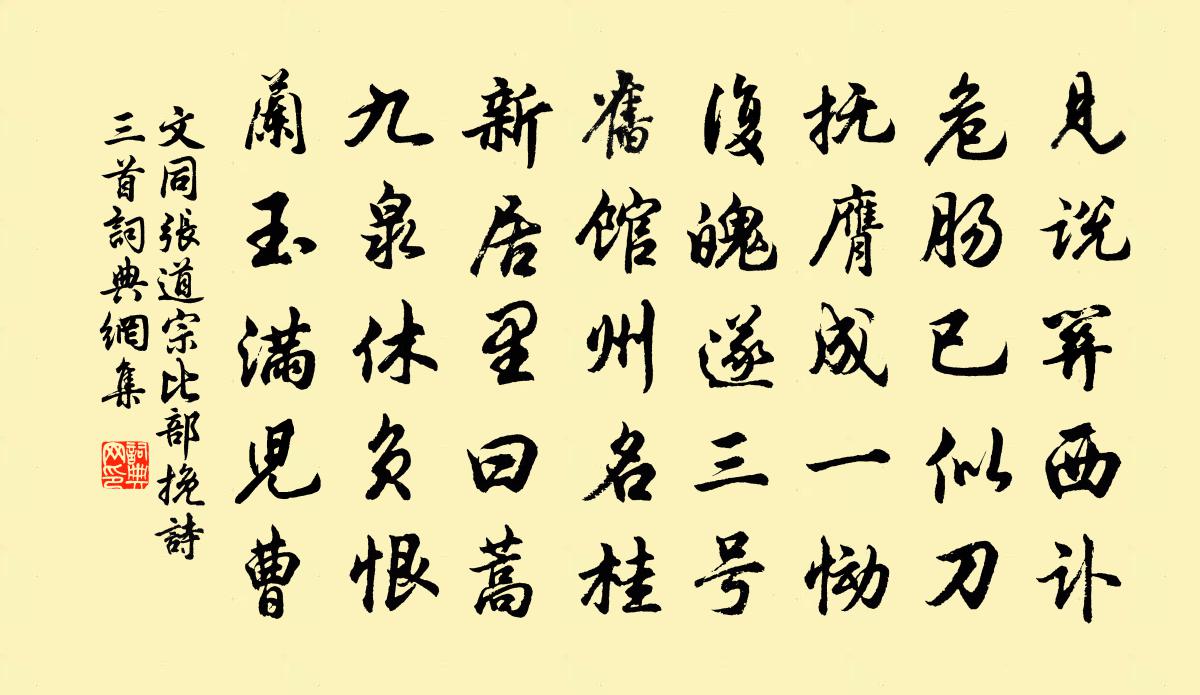 见说西讣
危肠已似刀
抚膺成一恸
復魄遂三号
舊馆州名桂
新居里曰蒿
九泉休负恨
蘭玉满児曹
文同張道宗比部挽詩
三首詞典網集
詞典
网印